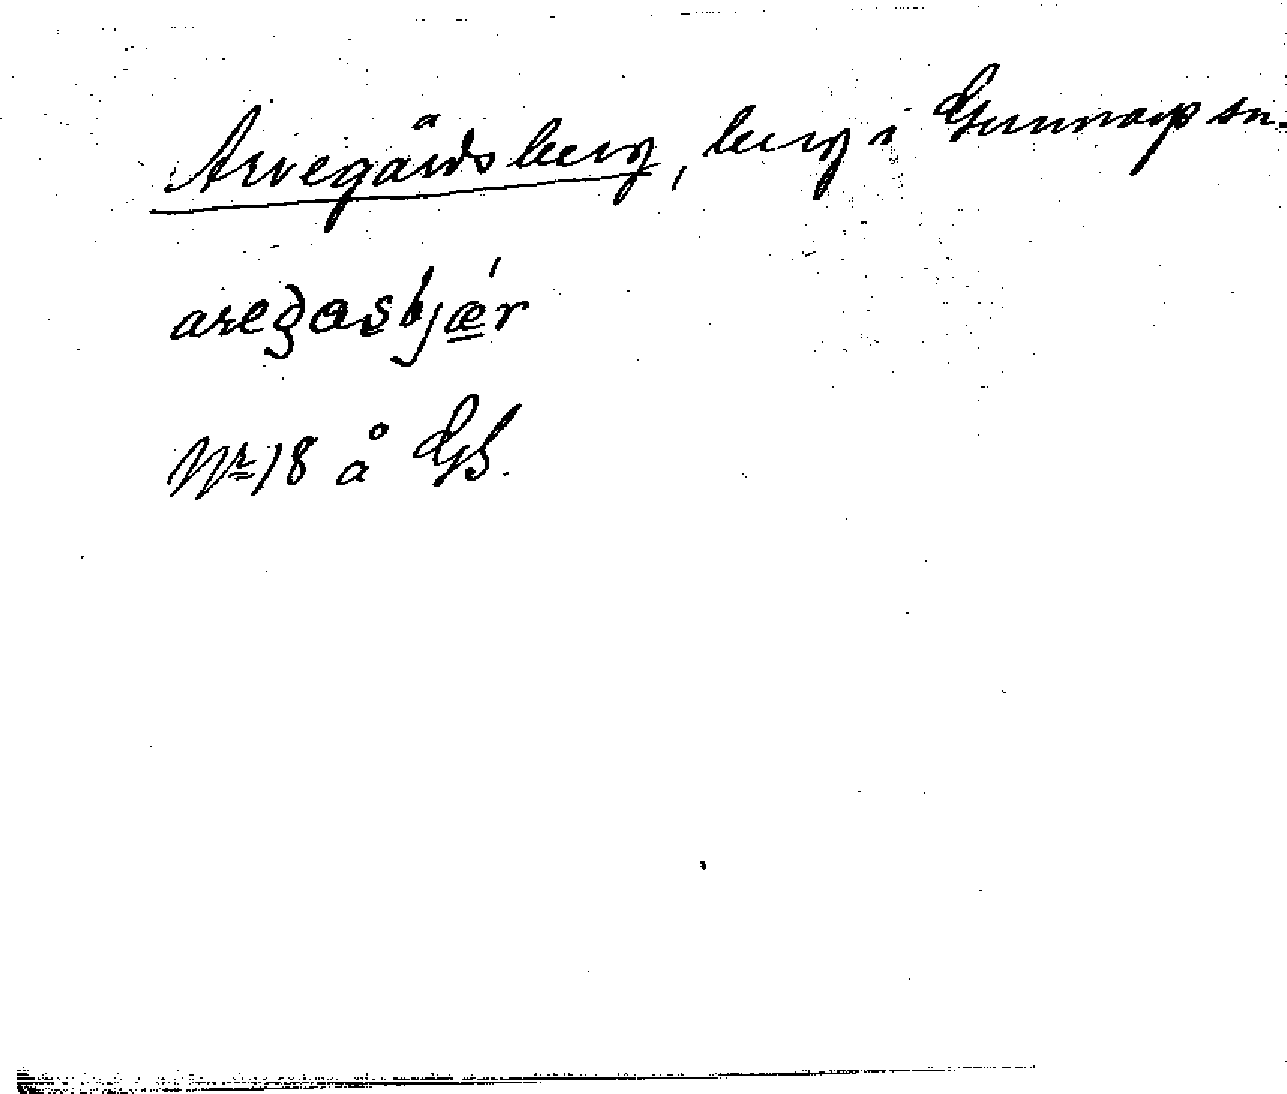 Arvegårdsberg, berg i Gunnarp sn.
aregasbjær
Nr 18 å GS.